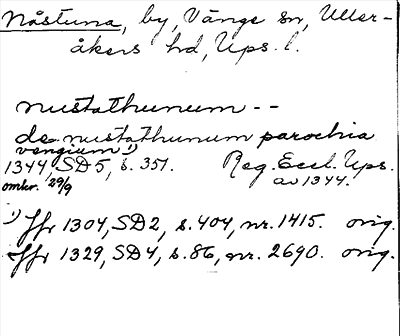 Nåstuna, by, Vänge sn, Uller-
åkers hd, Ups. l.
nustathunum --
de nustathunum parochia
vengium 1)
1344, SD5, s. 351. Reg. Eccl. Ups.
omkr. 29/9 av 1344.
1) Jfr 1304, SD2, s. 404, nr. 1415. orig.
Jfr 1329, SD4, s. 86, nr. 2690. orig.